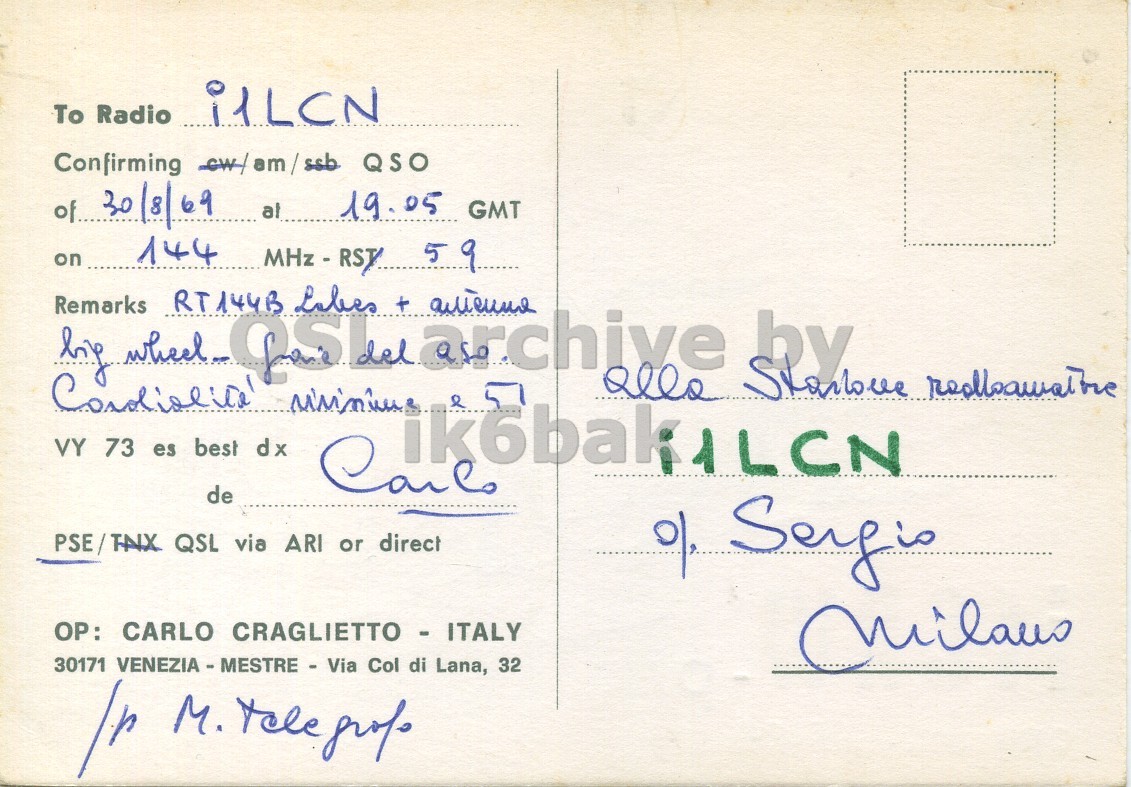 To Radio i1LCN
Confirming cw/am/ssb QSO
of 30/8/69 at 19.05 GMT
on 144 MHz - RST 59
Remarks RT144B Labes + antenna
big wheel - grazie del qso.
Cordialità vivissime e 51
VY 73 es best dx
de Carlo
PSE/TNX QSL via ARI or direct
OP: CARLO CRAGLIETTO - ITALY
30171 VENEZIA - MESTRE - Via Col di Lana, 32
/p M. Telegrafo
alla Stazione radioamatore
i1LCN
op. Sergio
Milano
QSL archive by
ik6bak